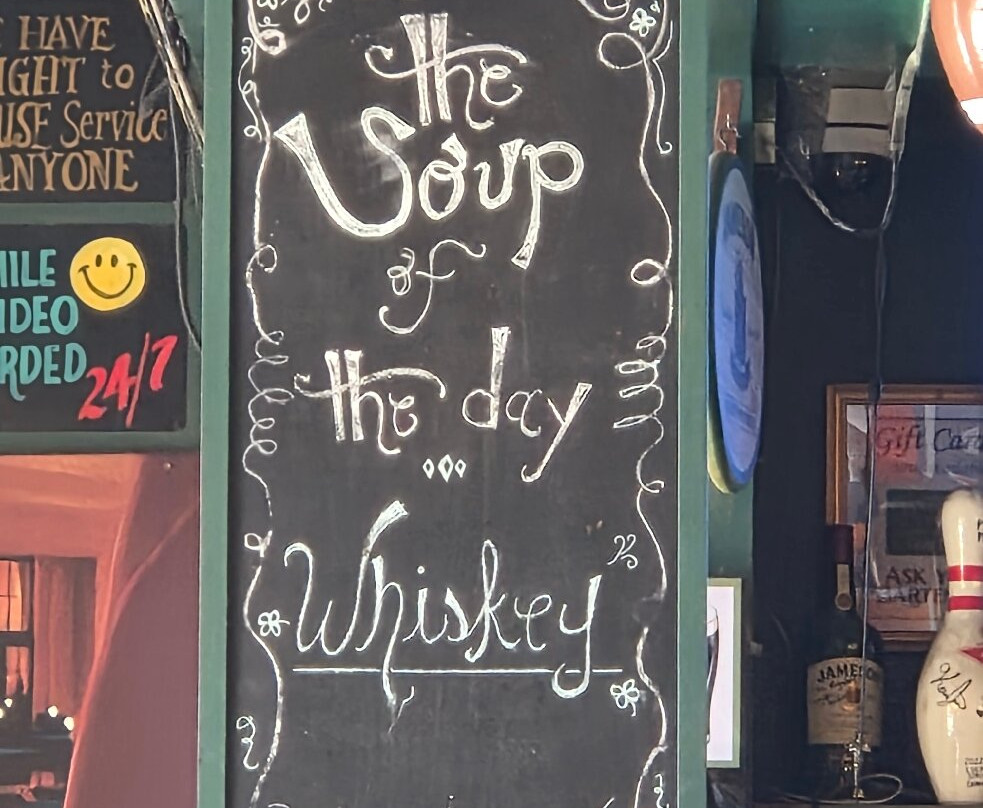 HAVE
IGHT to
USE Service
ANYONE
MILE
IDEO
RDED
24/7
the
Soup
of
the day
Whiskey
Gift Car
ASK
JAMES